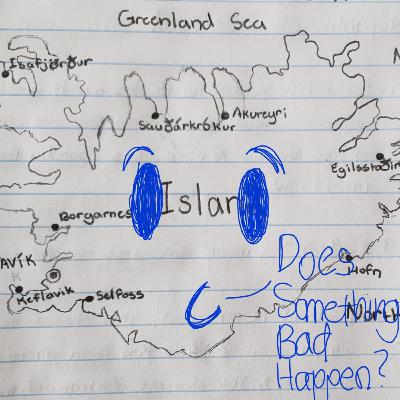 Greenland Sea
Ísafjörður
Sauðárkrókur
Akureyri
Egilsstaðir
Borgarnes
Íslan
AVÍK
Keflavik
Selfoss
Höfn
North
Does
Something
Bad
Happen?